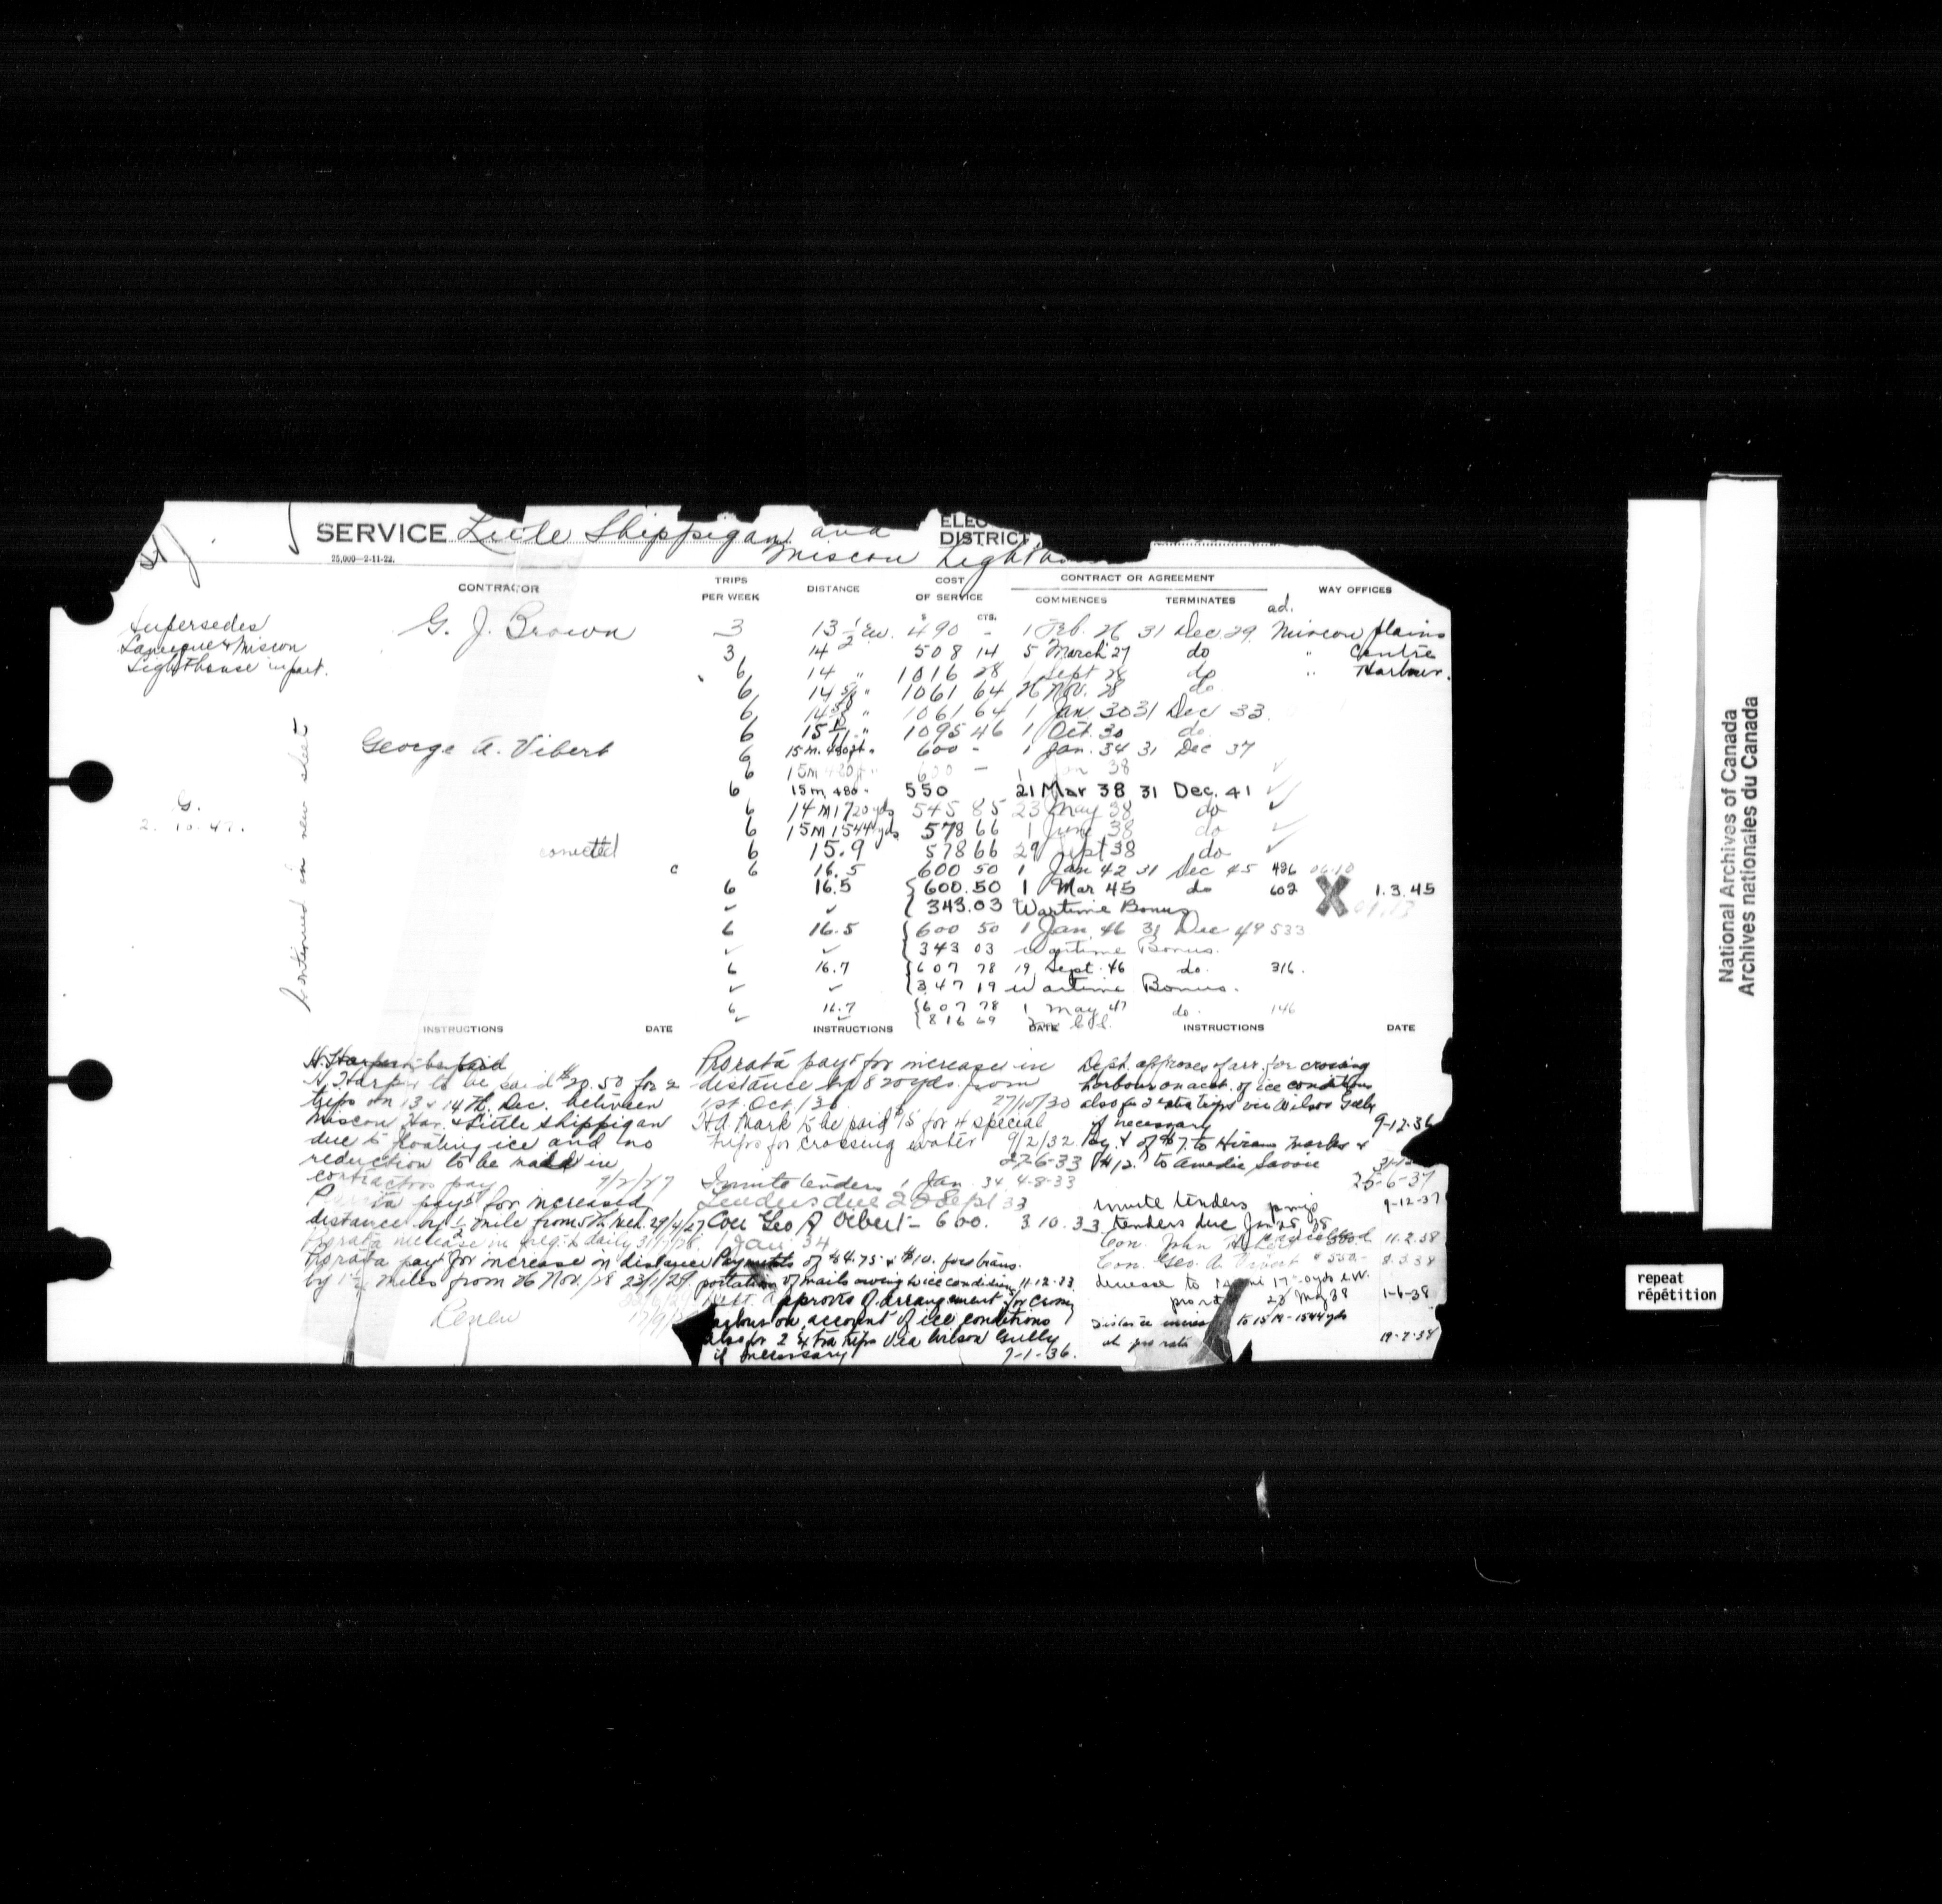 SERVICE Little Shippigan and
Miscou Lightho
ELEC
DISTRICT
25,000—2-11-22.
CONTRACTOR TRIPS PER WEEK DISTANCE COST OF SERVICE CONTRACT OR AGREEMENT WAY OFFICES
COMMENCES TERMINATES
$ CTS. ad.
Supersedes
Lameque & Miscou
Lighthouse in part.
continued on new sheet
G.
2. 10. 47.
G. J. Brown 3 13 1/2 Ew. 490 - 1 Feb. 26 31 Dec. 29. Miscou Plains
3 14 508 14 5 March 27 do " Centre
6 14 " 1016 28 1 Sept 28 do " Harbour.
6 14 " 1061 64 26 Nov. 28 do
6 14 " 1061 64 1 Jan 30 31 Dec 33.
6 15 " 1095 46 1 Oct. 30 do.
George A. Vibert 6 15 m. 480 " 600 - 1 Jan. 34 31 Dec 37
6 15 m 600 - 1 38
6 15 m 480 " 550 21 Mar 38 31 Dec. 41
6 14 M 1720 yds 545 85 23 May 38 do
6 15 M 1544 yds 578 66 1 June 38 do
corrected 6 15.9 578 66 29 Sept 38 do
c 6 16.5 600 50 1 Jan 42 31 Dec 45 486
6 16.5 600.50 1 Mar 45 do 602 X 1.3.45
343.03 Wartime Bonus
6 16.5 600 50 1 Jan. 46 31 Dec 49 533
343 03 Wartime Bonus.
6 16.7 607 78 19 Sept. 46 do. 316.
347 19 Wartime Bonus.
6 16.7 607 78 1 May 47 do. 146
816 69
INSTRUCTIONS DATE INSTRUCTIONS DATE INSTRUCTIONS DATE
H. Harper to be paid
H. Harper to be paid $20.50 for 2
trips on 13 & 14th Dec. between
Miscou Har. & Little Shippigan
due to floating ice and no
reduction to be made in
contractors pay
pay't for increased
distance by 1/2 mile from 5th Mch. 29/4/27
Prorata pay't for increase in distance
by miles from 26 Nov./28 23/1/29
Renew
Prorata pay't for increase in
distance by 820 yds. from
1st. Oct/30 27/10/30
Hd. Mark to be paid $15 for 4 special
trips for crossing water 9/2/32
27-6-33
Invite tenders 1 Jan. 34 4-8-33
Tenders due 22 Sept 33
Con Geo A Vibert - 600. 3 10. 33
1 Jan 34
Payments of $4.75 & $10. for trans.
portation of mails owing to ice conditions 11-12-33
Dept. approves of arrangement for crossing
harbour on account of ice conditions
also for 2 extra trips via Wilson Gully
if necessary 7-1-36.
Dept. approves of arr. for crossing
harbour on acct. of ice conditions
also for 2 extra trips via Wilson Gully
if necessary 9-12-36
Pay't of $7. to Hiram Marks &
$12. to Amedie Savoie
25-6-37
Invite tenders 9-12-37
tenders due Jan 28, 38
Con. John 11.2.38
Con. Geo. A. Vibert $550- 8.3.38
decrease to
23 May 38 1-6-38
Distance to 15 M - 1544 yds
at pro rata
National Archives of Canada
Archives nationales du Canada
repeat
répétition